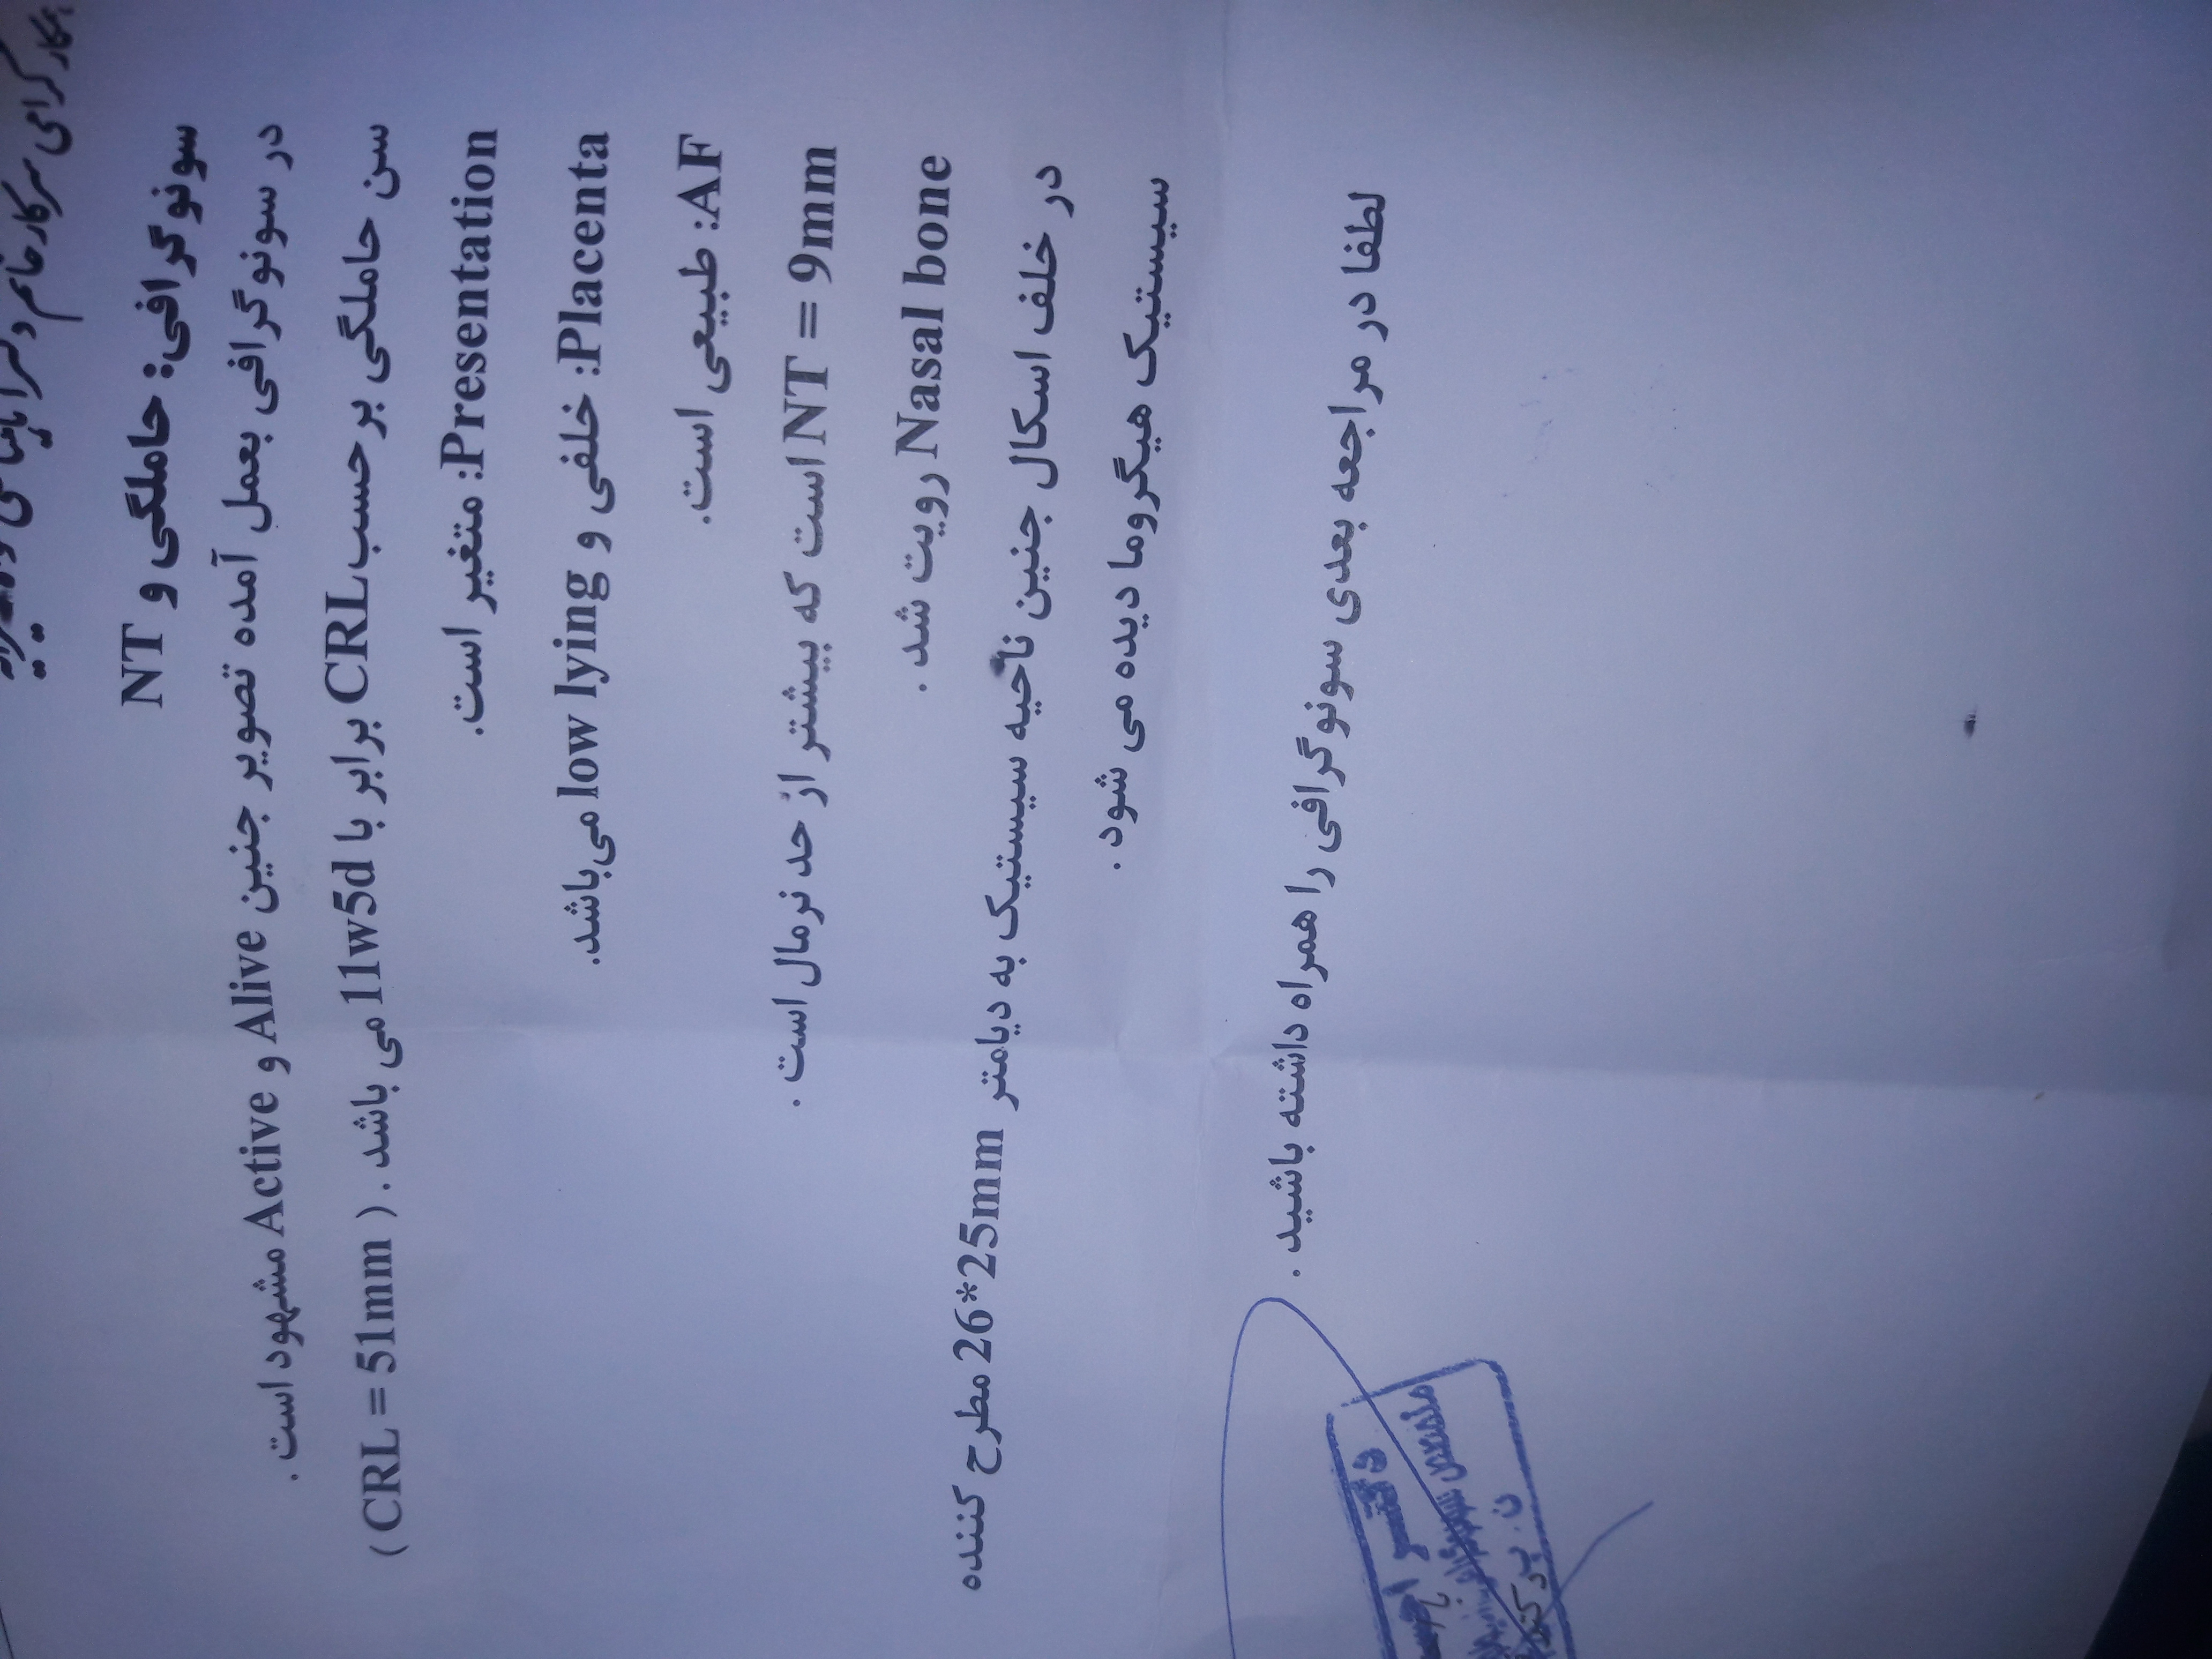 همکار گرامی سرکار خانم دکتر
سونوگرافی: حاملگی و NT
در سونوگرافی بعمل آمده تصویر جنین Alive و Active مشهود است .
سن حاملگی برحسب CRL برابر با 11w5d می باشد . ( CRL = 51mm )
Presentation: متغیر است.
Placenta: خلفی و low lying می‌باشد.
AF: طبیعی است.
NT = 9mm است که بیشتر از حد نرمال است .
Nasal bone رویت شد .
در خلف اسکال جنین ناحیه سیستیک به دیامتر 26*25mm مطرح کننده
سیستیک هیگروما دیده می شود .
لطفا در مراجعه بعدی سونوگرافی را همراه داشته باشید .
دکتر
متخصص